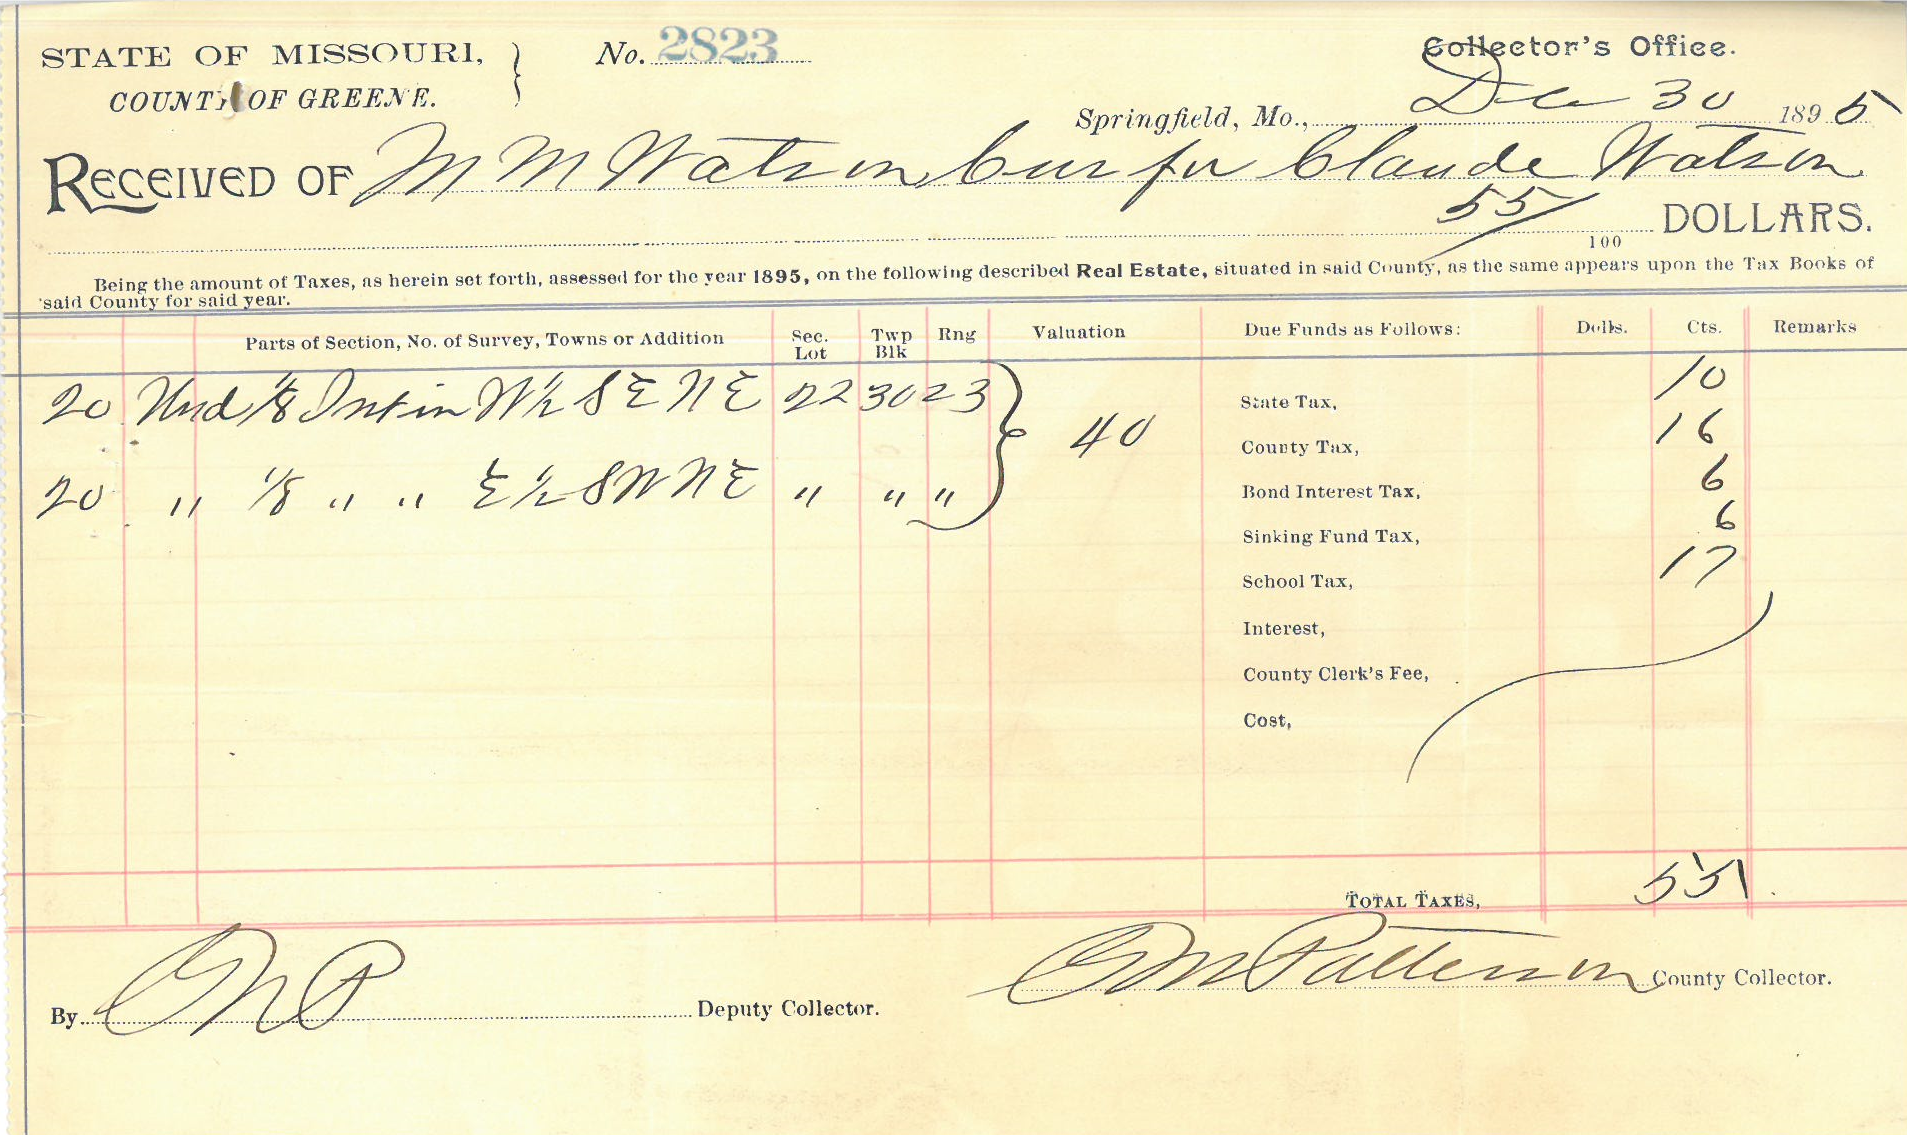 STATE OF MISSOURI, } No. 2823 Collector's Office.
COUNTY OF GREENE. Springfield, Mo., Dec 30 1895
RECEIVED OF M M Watson, Cur for Claude Watson
55/100 DOLLARS.
Being the amount of Taxes, as herein set forth, assessed for the year 1895, on the following described Real Estate, situated in said County, as the same appears upon the Tax Books of
said County for said year.
Parts of Section, No. of Survey, Towns or Addition Sec. Lot Twp Blk Rng Valuation Due Funds as Follows: Dolls. Cts. Remarks
20 Und 1/8 Int in W½ SE NE 22 30 23 State Tax, 10
40 County Tax, 16
20 " 1/8 " " E ½ SW NE " " " Bond Interest Tax, 6
Sinking Fund Tax, 6
School Tax, 17
Interest,
County Clerk's Fee,
Cost,
TOTAL TAXES, 55
By Deputy Collector. Patterson County Collector.